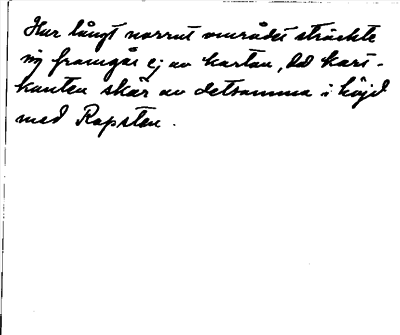 Hur långt norrut området sträckte
sig framgår ej av kartan, då kart-
kanten skär av detsamma i höjd
med Rapsten.